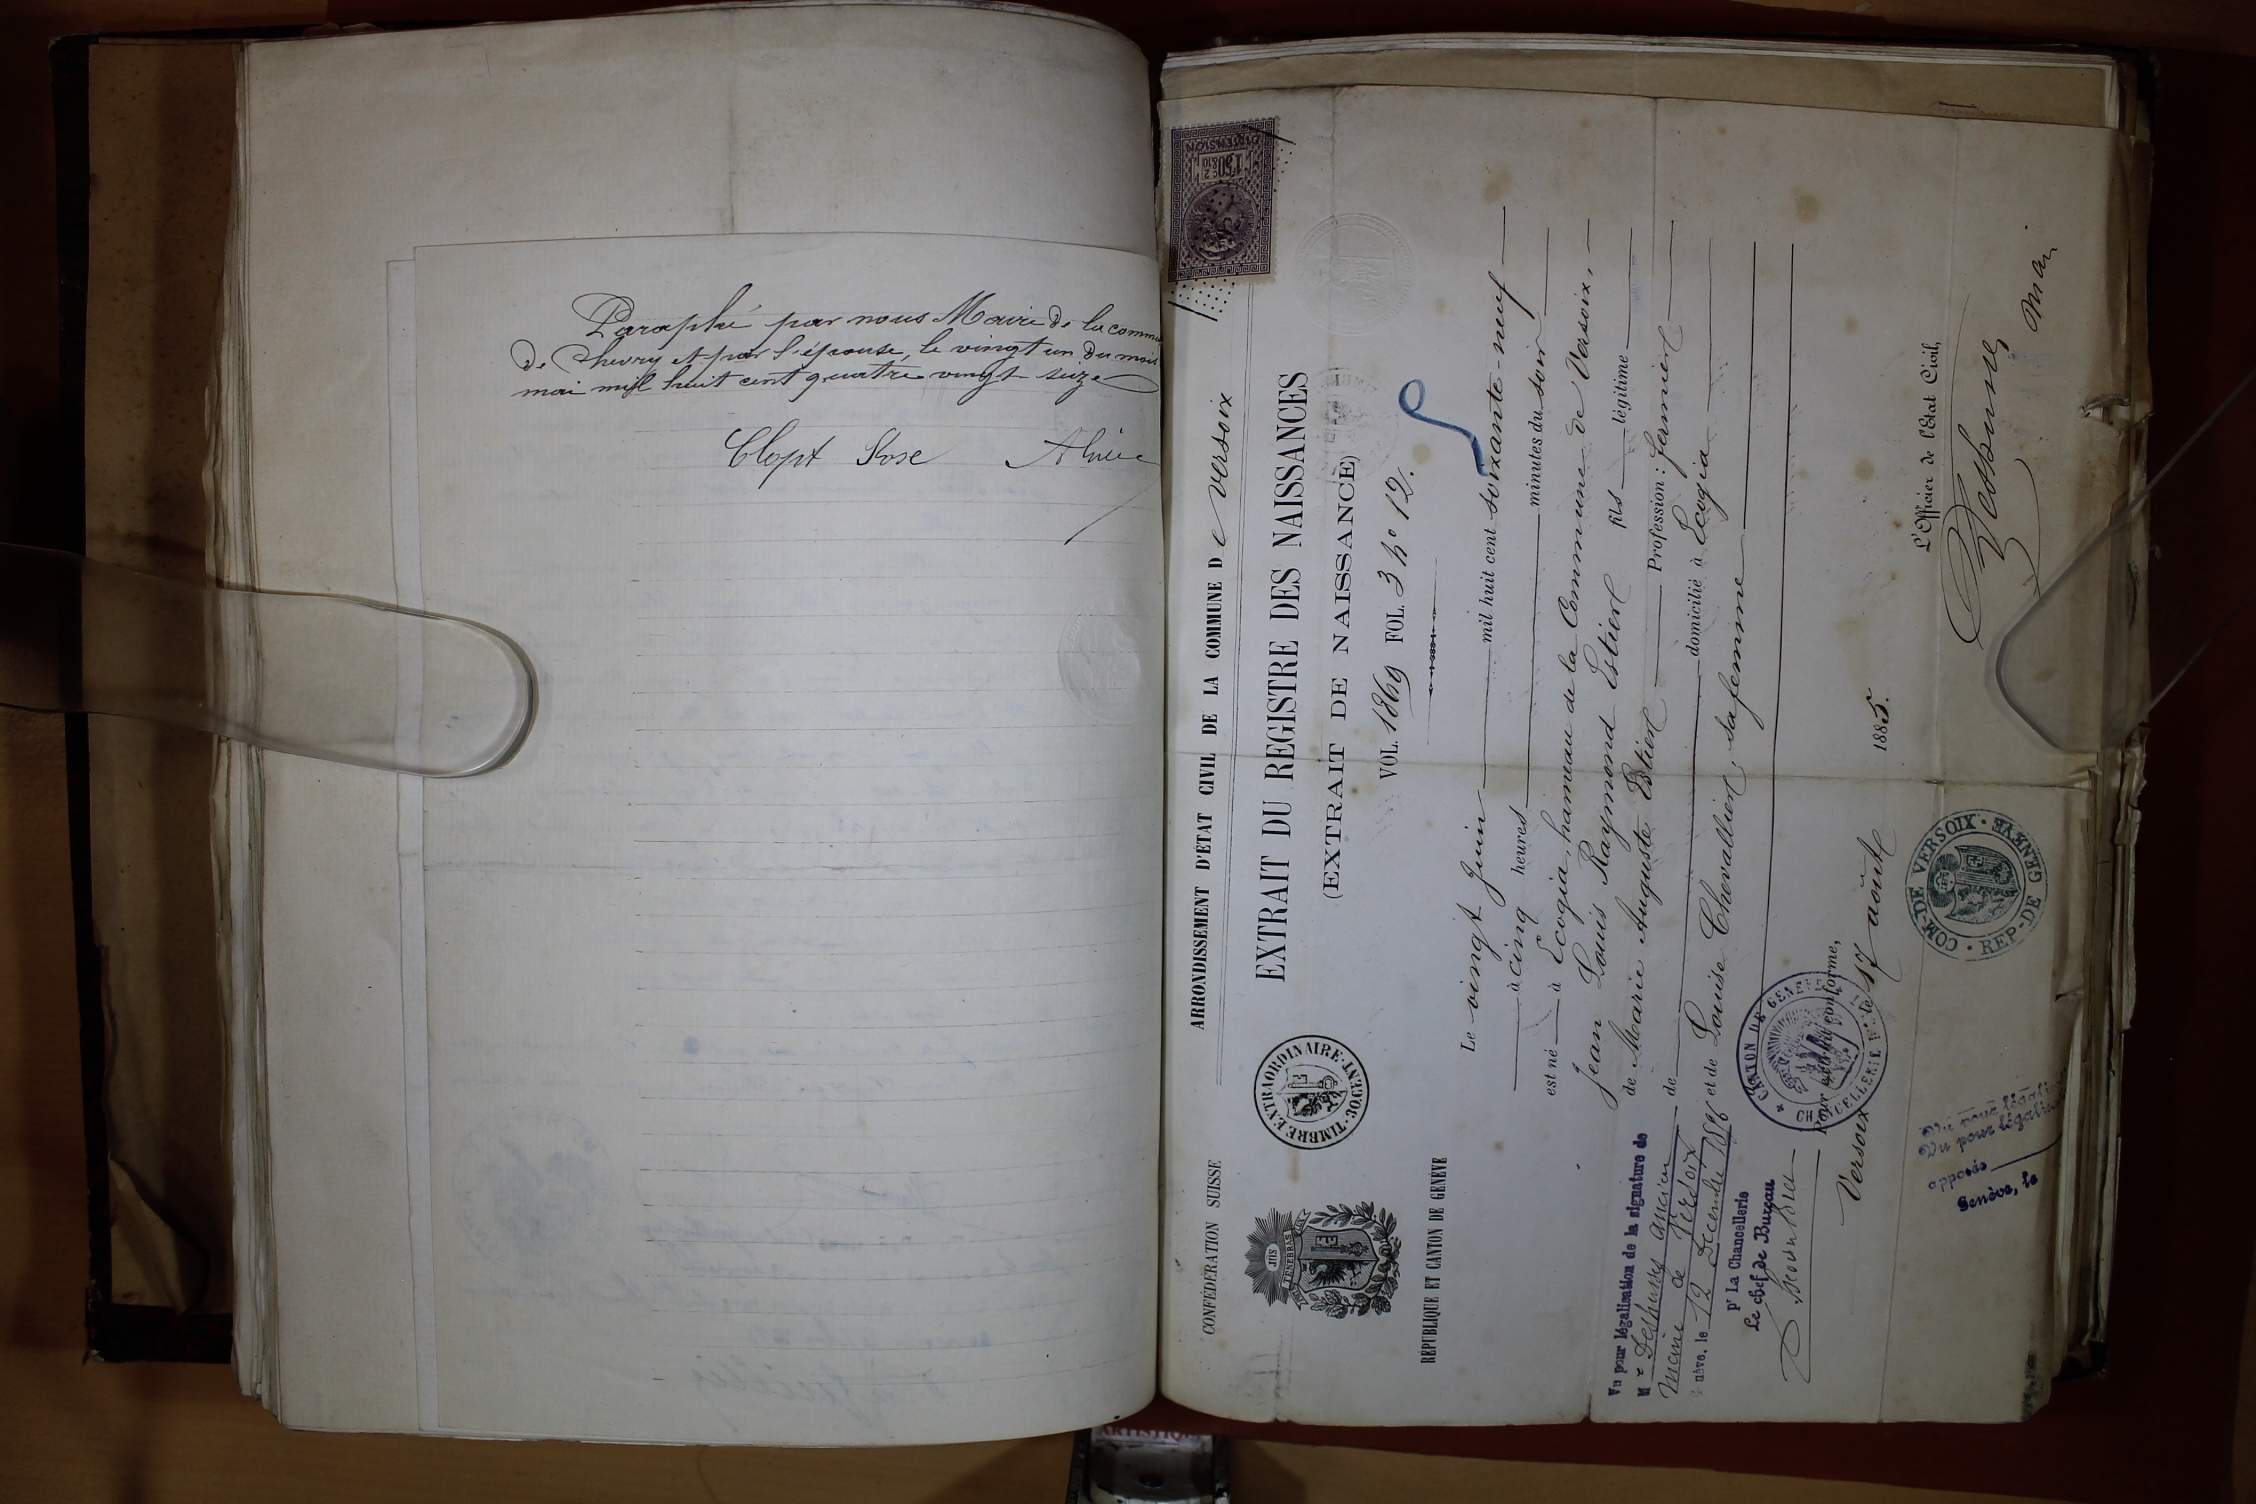 Paraphé par nous Maire de la commu
de Chevry et par l'épouse, le vingt un du mois
mai mil huit cent quatre vingt seize
Clopt Rose
CONFÉDÉRATION SUISSE
RÉPUBLIQUE ET CANTON DE GENÈVE
TIMBRE EXTRAORDINAIRE
ARRONDISSEMENT D'ÉTAT CIVIL DE LA COMMUNE De Versoix
EXTRAIT DU REGISTRE DES NAISSANCES
(EXTRAIT DE NAISSANCE)
VOL. 1869 FOL. 3 No 12.
Le vingt Juin mil huit cent soixante-neuf
à cinq heures minutes du soir
est né à Ecogia, hameau de la Commune de Versoix,
Jean Louis Raymond Estier fils légitime
de Marie Auguste Estier Profession: fermier
de domicilié à Ecogia
et de Louise Chevallier, sa femme
Pour extrait conforme,
Versoix le 17 août 1885.
L'Officier de l'État Civil,
Maire
COM. DE VERSOIX · REP. DE GENÈVE
CANTON DE GENÈVE
CHANCELLERIE
Vu pour légalisation de la signature de
Mr Deshusses ancien
maire de Versoix
nève, le 12 Décembre 1896
pr La Chancellerie
Le chef de Bureau
Vu pour légali
Vu pour légalis
apposée
Genève, le
DIMENSION